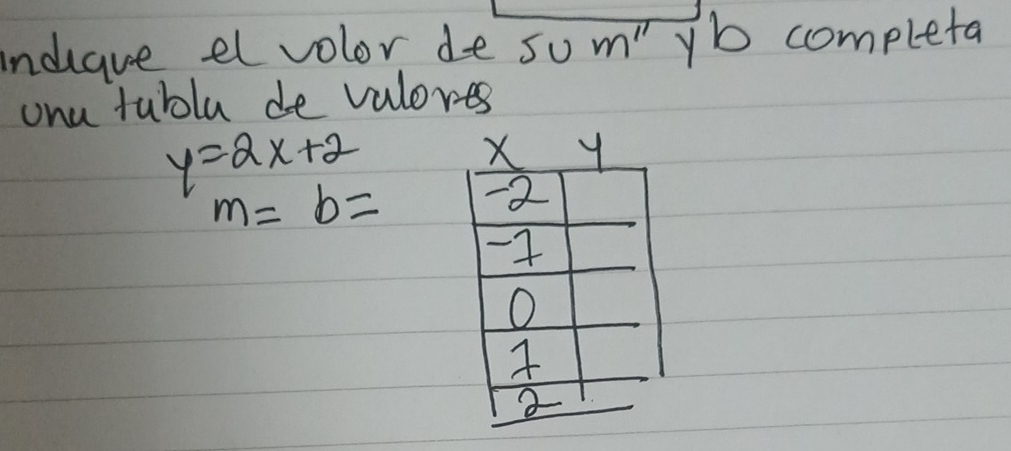 indique el volor de su m" y b completa
una tabla de valores
y=2x+2
m= b=
x y
-2
-1
0
1
2